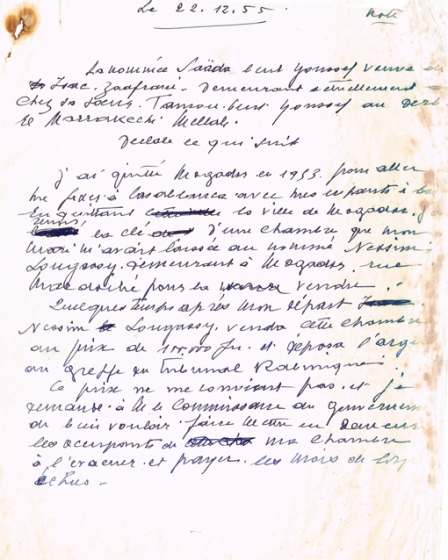 Le 22.12.55.
Note
La nommée Saâda bent Youssef veuve
Isac. Zaafrani. Demeurant actuellement
chez sa soeur. Tamou. bent Youssef au Derb
Marrakechi Mellah.
Déclare ce qui suit
J'ai quitté Mogador en 1953 pour aller
me fixer à Casablanca avec mes enfants
En quittant la ville de Mogador. j'
remis la clé d'une chambre que mon
mari m'avait laissée au nommé Nessim
Lougassy. demeurant à Mogador, rue
pour la vendre.
Quelques temps après mon départ
Nessim Lougassy. vendu cette chambre
au prix de frs. et déposa l'argent
au greffe du Tribunal Rabinique.
Ce prix ne me convient pas. et je
demande à M. le Commissaire du gouvernement
de bien vouloir faire mettre en demeure
les occupants de ma chambre
à l'évacuer. et payer. les mois de loy
échus -